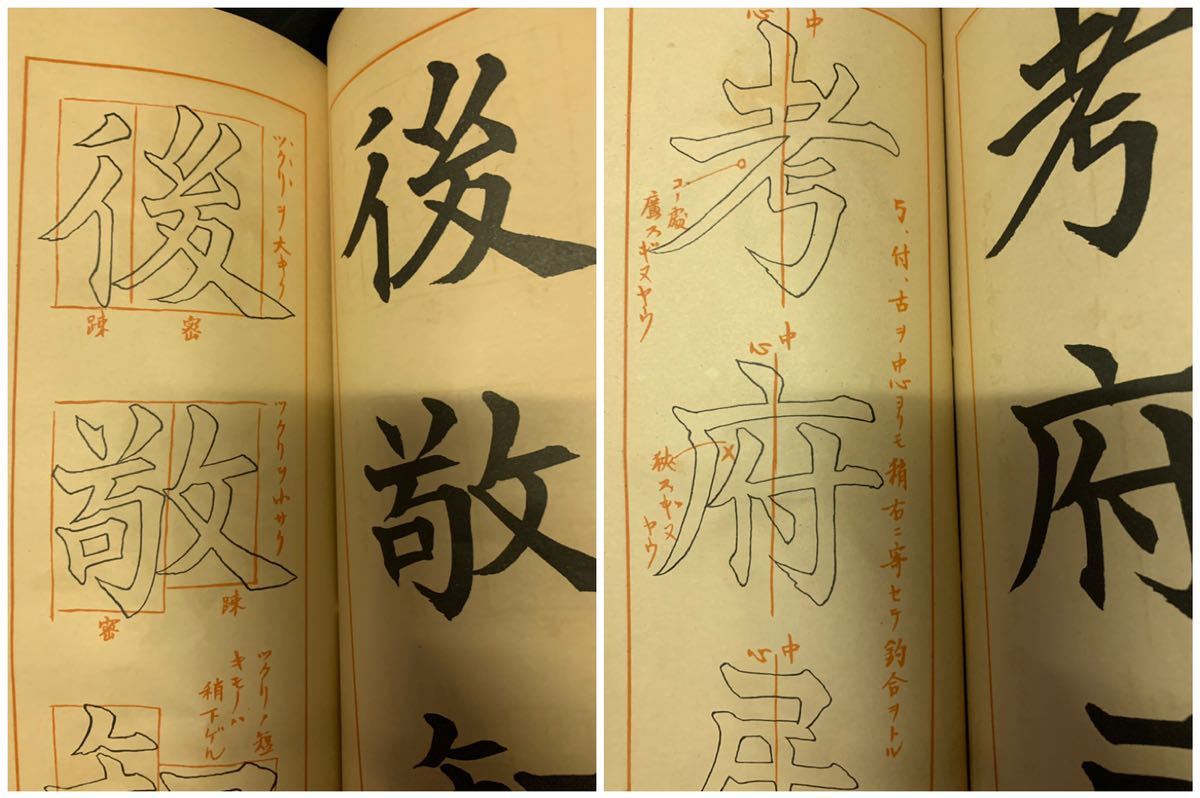 後
敬
ツクリヲ大キク
後
踈
密
ツクリヲ小サク
敬
密
踈
ツクリノ短
キモノハ
稍下ゲル
考
府
丂、付、古ヲ中心ヨリモ稍右ニ寄セテ釣合ヲトル
中心
考
コノ處
廣スギヌヤウ
中心
府
狹スギヌ
ヤウ
中心